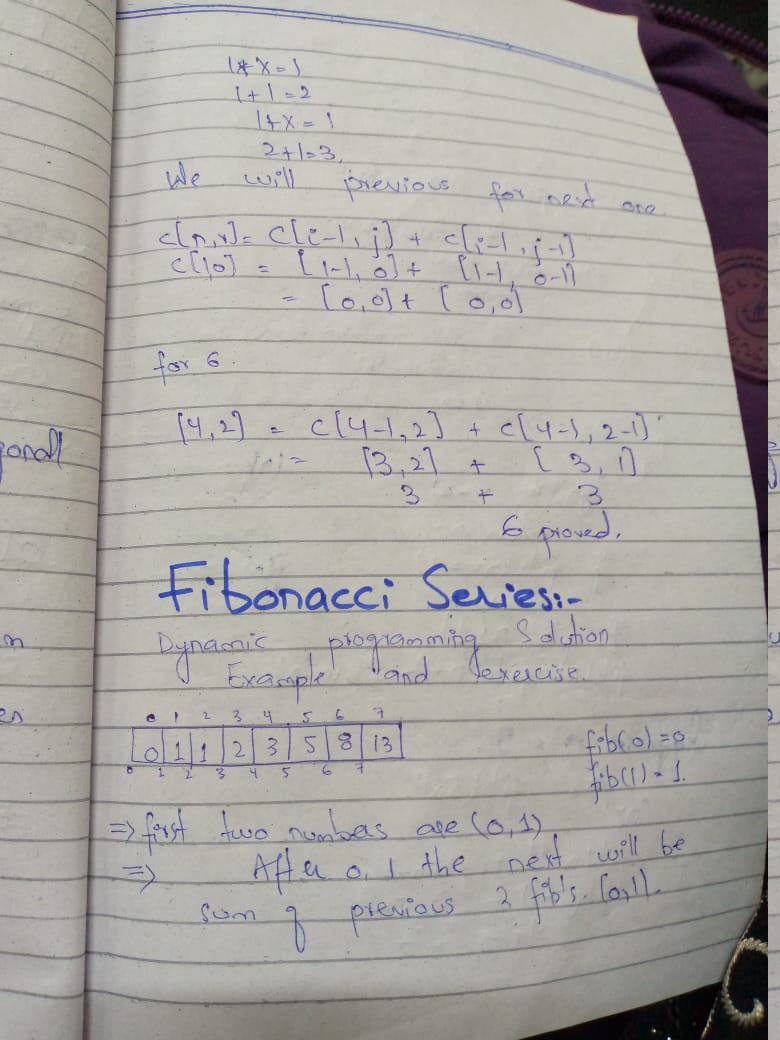 1+X=1
1+1=2
1+X=1
2+1=3,
We will previous for next one
c[n,r]= c[i-1, j] + c[i-1, j-1]
c[1,0] = [1-1, 0] + [1-1, 0-1]
= [0,0] + [0,0]
for 6.
[4,2] = c[4-1,2] + c[4-1, 2-1]
= [3,2] + [3,1]
3 + 3
6 proved.
gonall
Fibonacci Series:-
Dynamic programming Solution
Example and exercise.
0 1 2 3 4 5 6 7
0 1 1 2 3 5 8 13
0 1 2 3 4 5 6 7
fib(0)=0
fib(1)=1.
⇒ first two numbers are (0,1)
⇒ After 0,1 the next will be
sum of previous 2 fib's. [0,1].